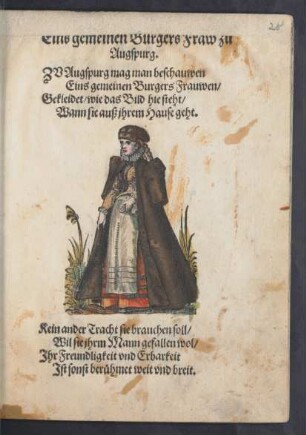 Eins gemeinen Burgers Fraw zu
Augspurg.
ZV Augspurg mag man beschauwen
Eins gemeinen Burgers Frauwen/
Gekleidet/ wie das Bild hie steht/
Wann sie auß jhrem Hause geht.
Kein ander Tracht sie brauchen soll/
Wil sie jhrm Mann gefallen wol/
Jhr Freundligkeit vnd Erbarkeit
Jst sonst berühmet weit vnd breit.